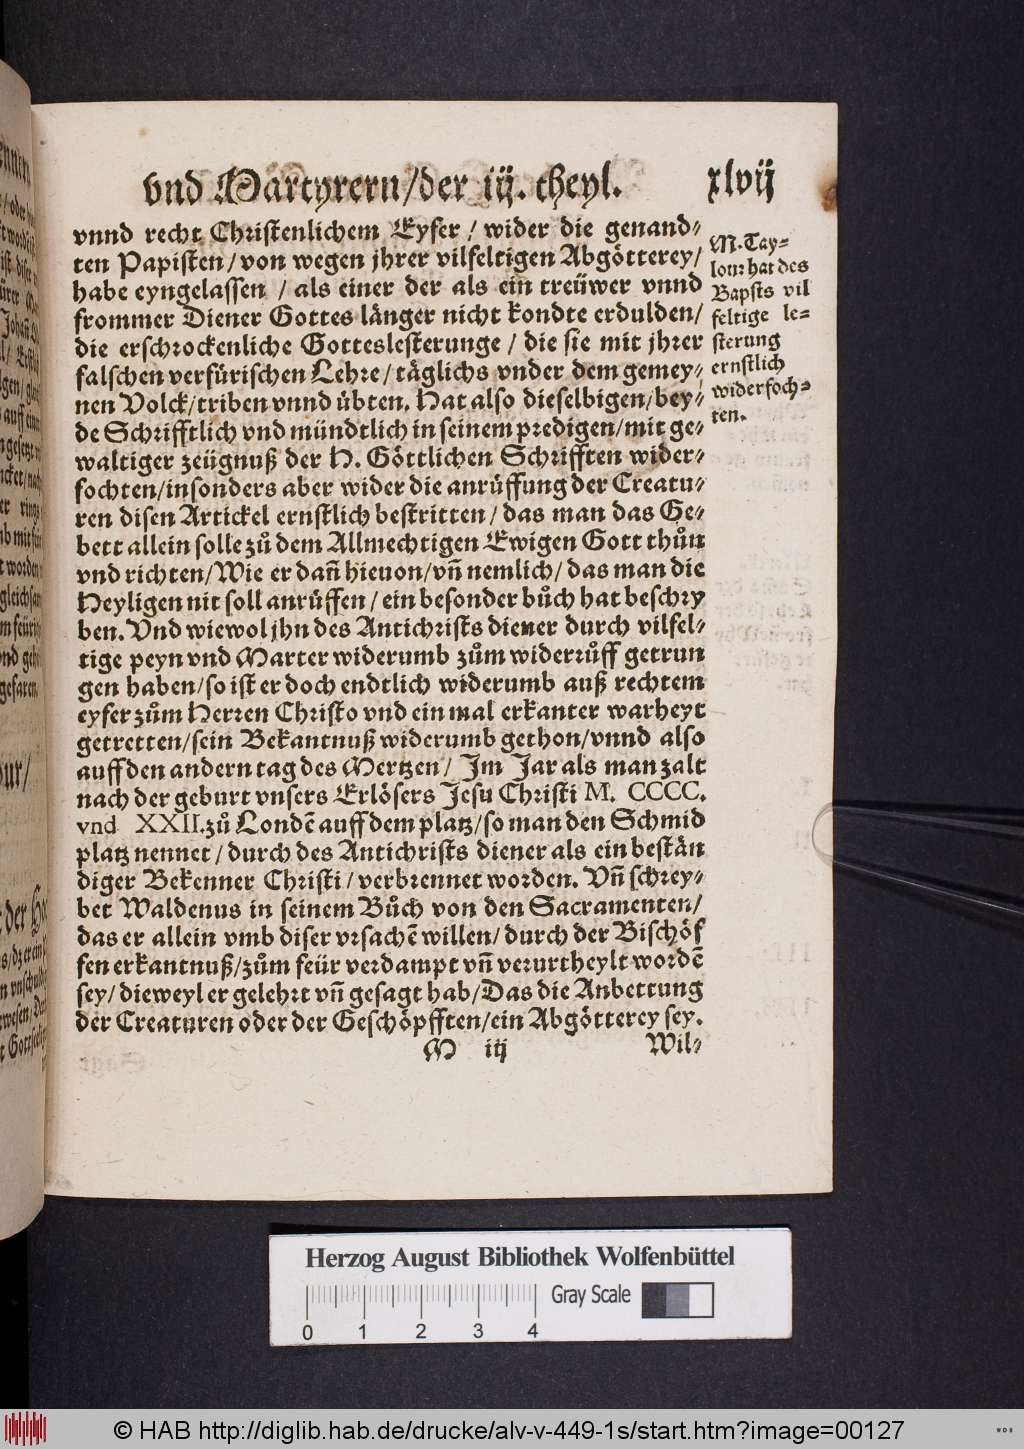 vnd Martyrern/der iij. theyl.
xlvij
vnnd recht Christenlichem Eyfer / wider die genand⸗
ten Papisten/von wegen jhrer vilfeltigen Abgötterey/
habe eyngelassen / als einer der als ein treüwer vnnd
frommer Diener Gottes länger nicht kondte erdulden/
die erschrockenliche Gotteslesterunge / die sie mit jhrer
falschen verfürischen Lehre/täglichs vnder dem gemey⸗
nen Volck/triben vnnd übten. Hat also dieselbigen/bey⸗
de Schrifftlich vnd mündtlich in seinem predigen/mit ge⸗
waltiger zeügnuß der H. Göttlichen Schrifften wider⸗
fochten/insonders aber wider die anrůffung der Creatu⸗
ren disen Artickel ernstlich bestritten/das man das Ge⸗
bett allein solle zů dem Allmechtigen Ewigen Gott thůn
vnd richten/Wie er dañ hieuon/vñ nemlich/das man die
Heyligen nit soll anrůffen/ein besonder bůch hat beschry
ben. Vnd wiewol jhn des Antichrists diener durch vilfel⸗
tige peyn vnd Marter widerumb zům widerrůff getrun
gen haben/so ist er doch endtlich widerumb auß rechtem
eyfer zům Herren Christo vnd ein mal erkanter warheyt
getretten/sein Bekantnuß widerumb gethon/vnnd also
auff den andern tag des Mertzen/ Im Jar als man zalt
nach der geburt vnsers Erlösers Jesu Christi M. CCCC.
vnd XXII.zů Londē auff dem platz/so man den Schmid
platz nennet/durch des Antichrists diener als ein bestän
diger Bekenner Christi/verbrennet worden. Vñ schrey⸗
bet Waldenus in seinem Bůch von den Sacramenten/
das er allein vmb diser vrsachē willen/durch der Bischöf
fen erkantnuß/zům feür verdampt vñ verurtheylt wordē
sey/dieweyl er gelehrt vñ gesagt hab/Das die Anbettung
der Creaturen oder der Geschöpfften/ein Abgötterey sey.
M iij
Wil⸗
M. Tay⸗
lour hat des
Bapsts vil
feltige le⸗
sterung
ernstlich
widerfoch⸗
ten.
Herzog August Bibliothek Wolfenbüttel
0 1 2 3 4
Gray Scale
© HAB http://diglib.hab.de/drucke/alv-v-449-1s/start.htm?image=00127